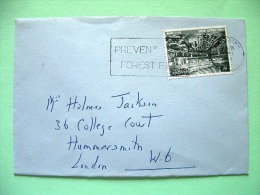 PREVENT
FOREST FI
Mr Holmes Jackson
36 College Court
Hammersmith
London W6